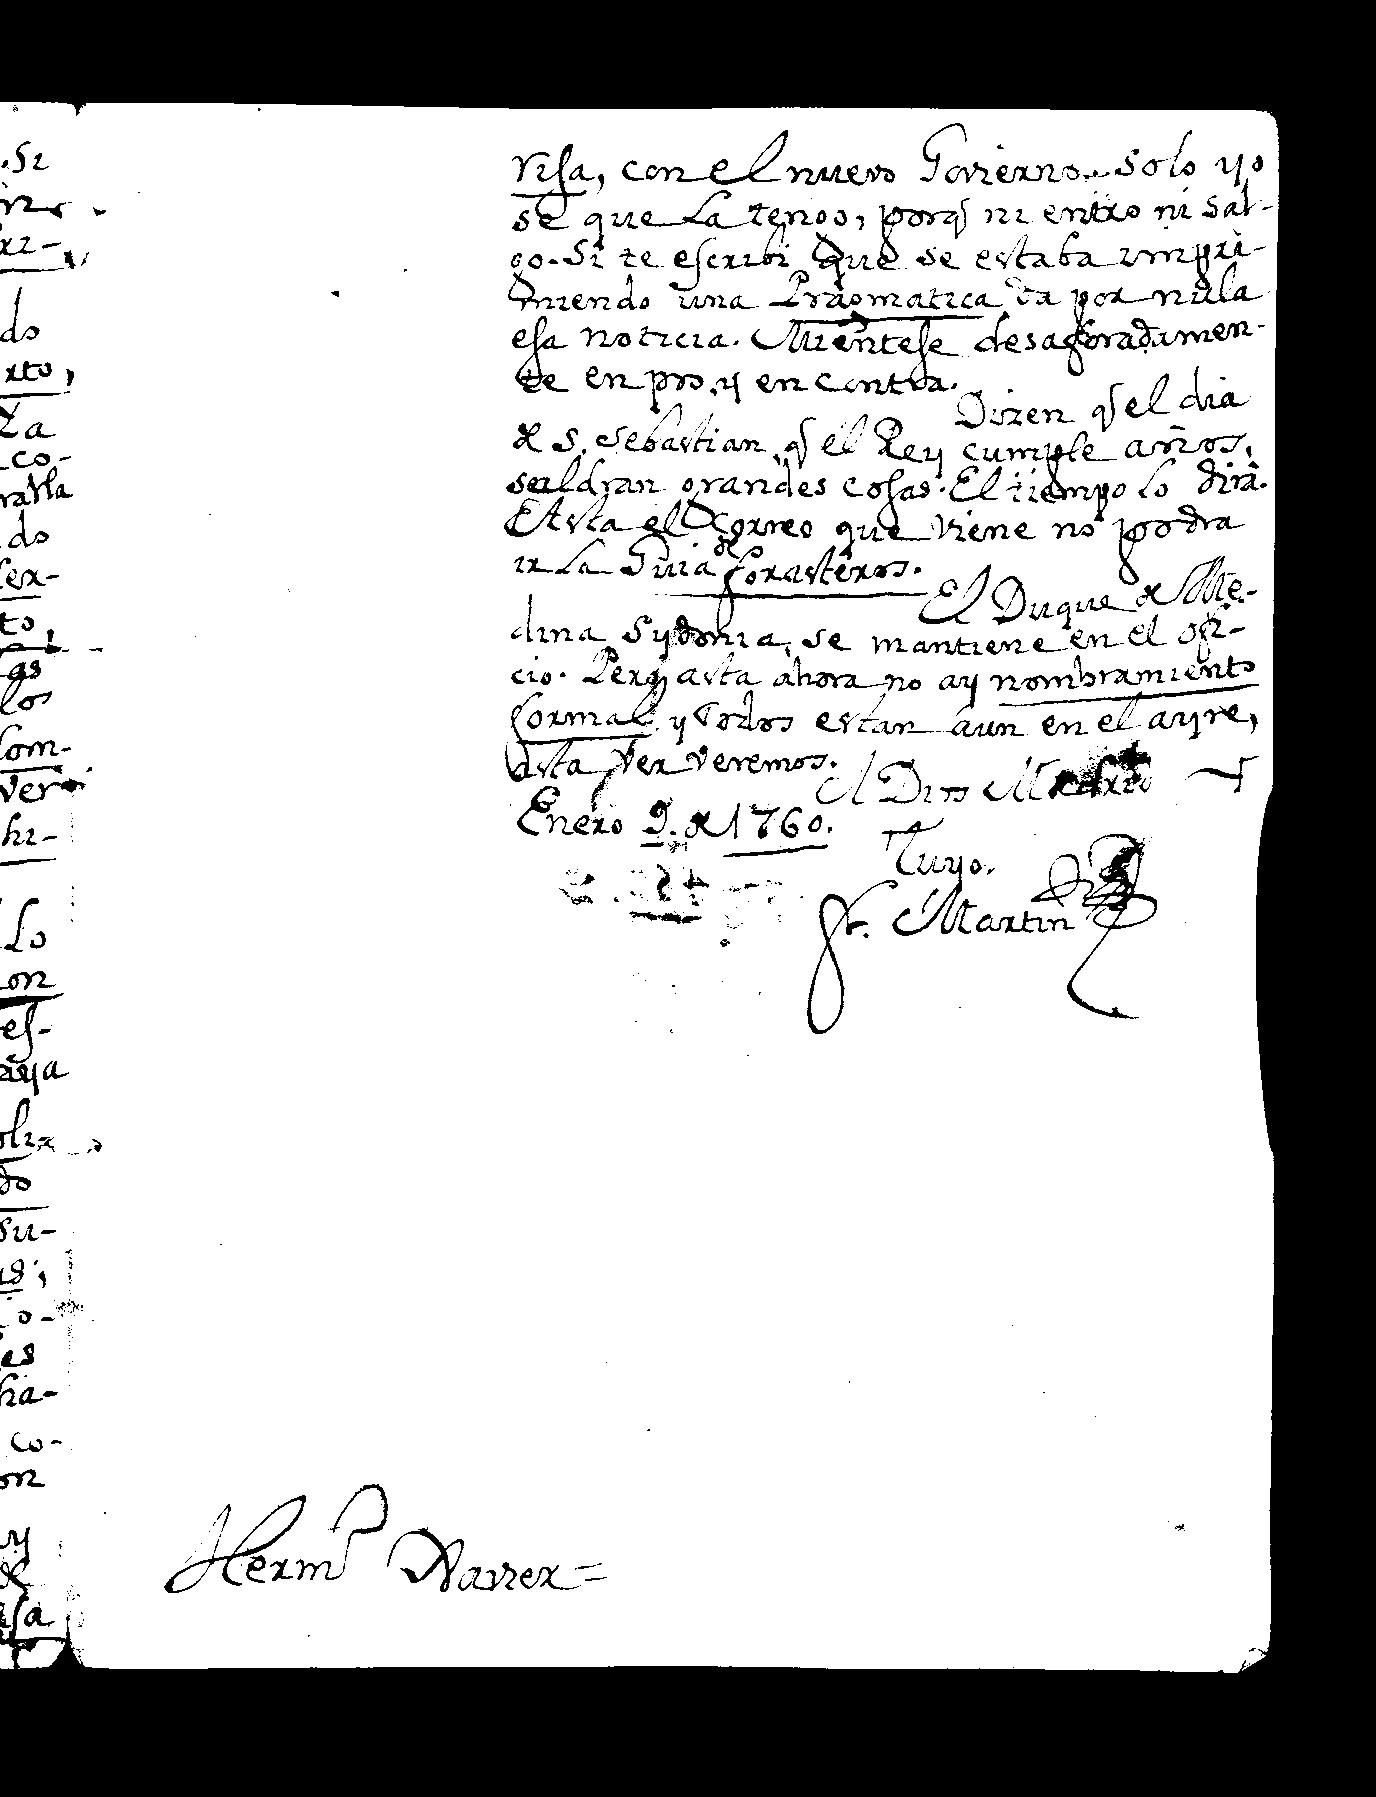 risa, con el nuevo Govierno. Solo yo
se que la tengo, porq̃ ni entro ni sal-
go. Si te escribi que se estaba impri-
miendo una Pragmatica da por nula
esa noticia. Mientese desaforadamen-
te en pro, y en contra.
Dizen q̃ el dia
de S. Sebastian, q̃ el Rey cumple años,
saldran grandes cosas. El tiempo lo dirà.
Asta el Correo que viene no podra
ir la Guia de forasteros.
El Duque de Me-
dina Sydonia, se mantiene en el ofi-
cio. Pero asta ahora no ay nombramiento
formal y todos estan aun en el ayre,
asta ver veremos.
A Dios Madrid y
Enero 9. de 1760.
Tuyo.
fr. Martin
Hermo Xavier=
.Si
do
rto,
La
co-
do
to,
las
los
Com-
ver
hi-
Lo
on
es-
do
su-
o-
es
ha-
co-
on
y
de
asa